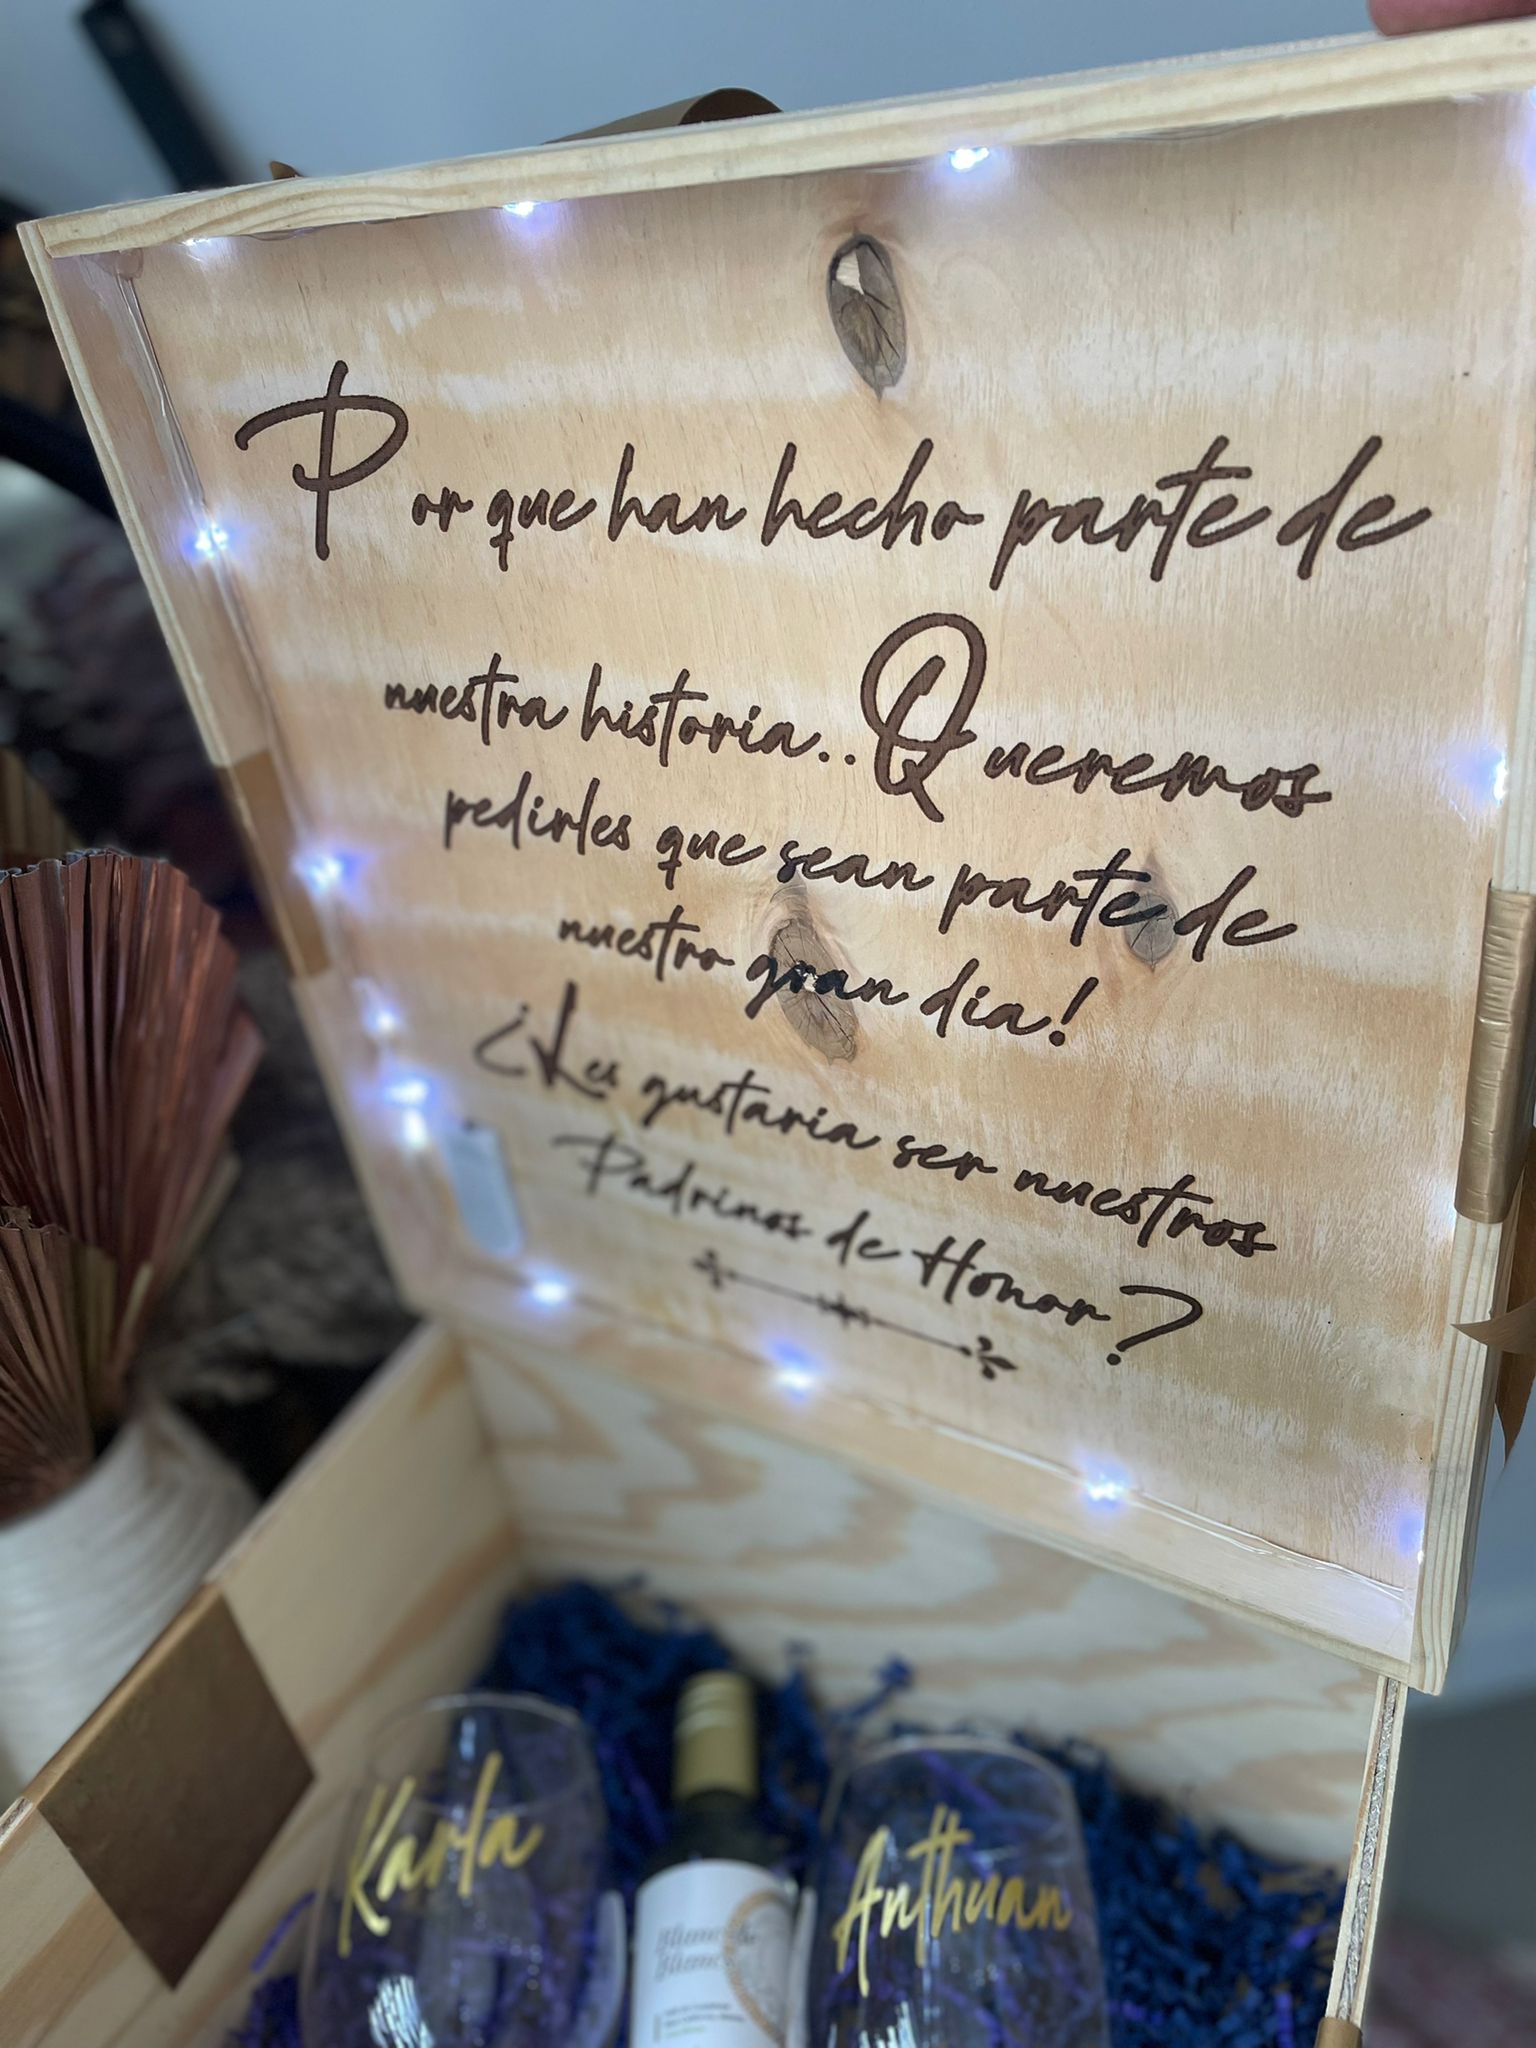 Por que han hecho parte de
nuestra historia..Queremos
pedirles que sean parte de
nuestro gran dia!
¿Les gustaria ser nuestros
Padrinos de Honor?
Karla
Anthuan